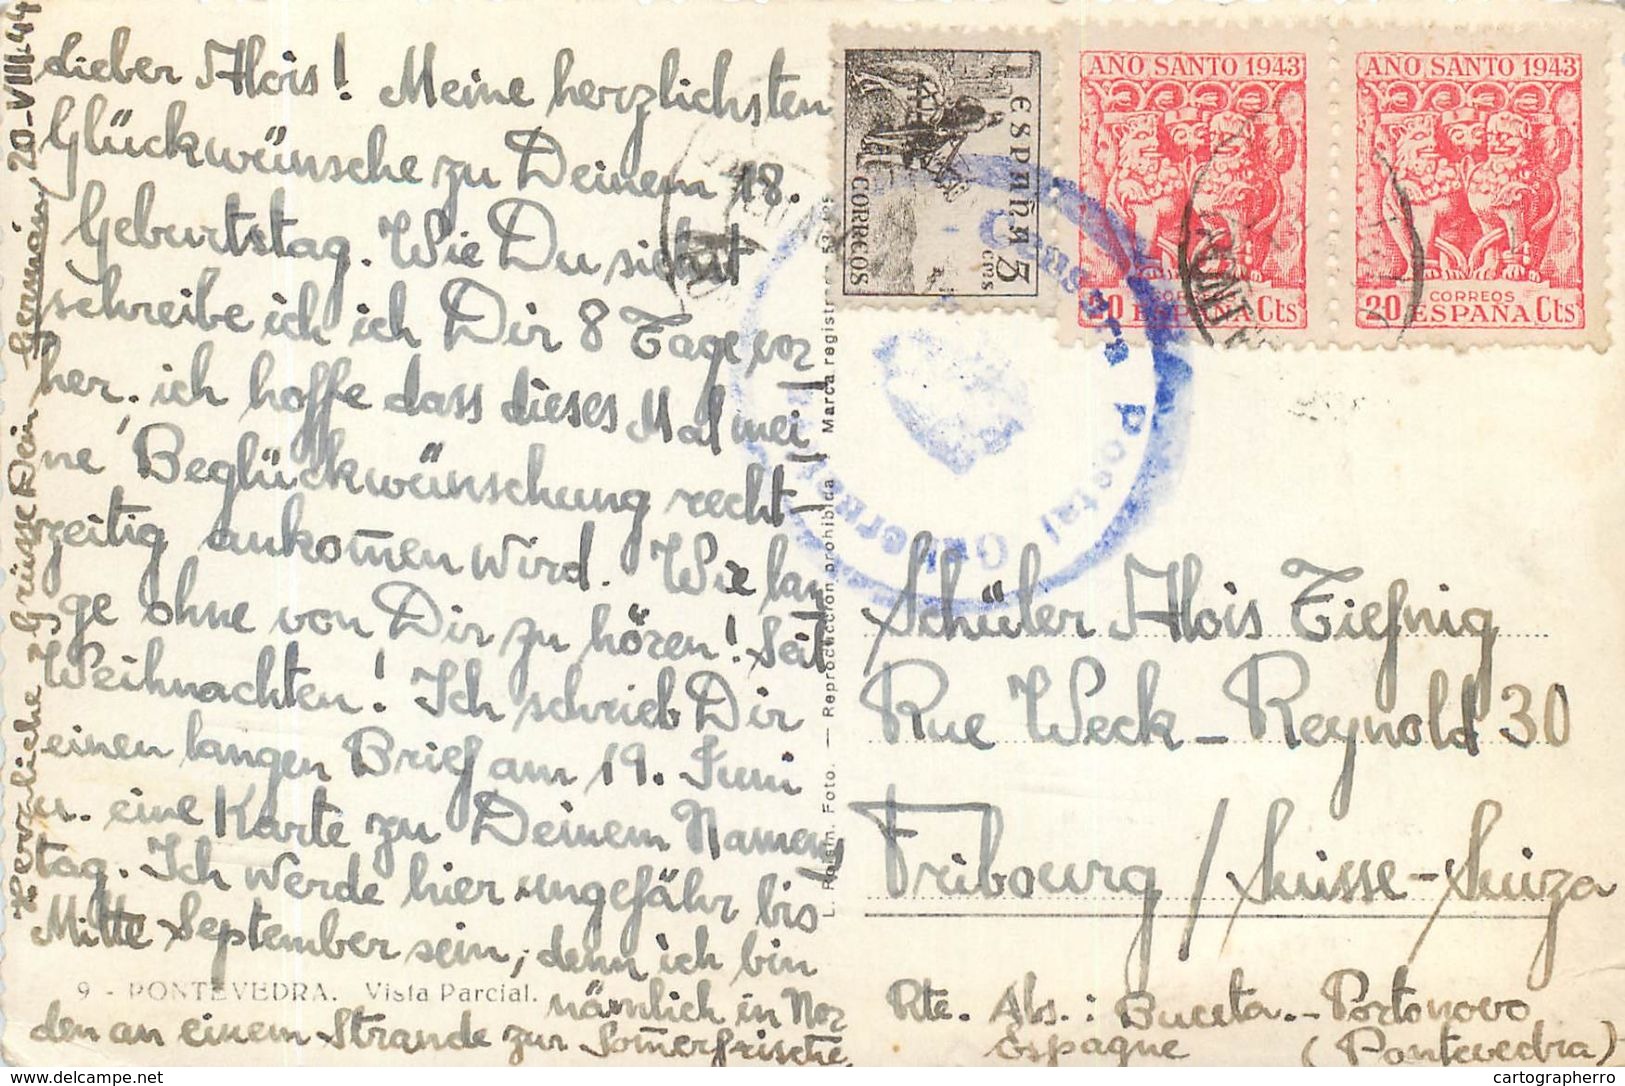 Lieber Alois! Meine herzlichsten
Glückwünsche zu Deinem 18.
Geburtstag. Wie Du siehst
schreibe ich ich Dir 8 Tage vor
her. ich hoffe dass dieses Mal mei
ne Beglückwünschung recht-
zeitig ankom̄en wird. Wie lan
ge ohne von Dir zu hören! Seit
Weihnachten! Ich schrieb Dir
einen langen Brief am 19. Juni
u. eine Karte zu Deinem Namens
tag. Ich werde hier ungefähr bis
Mitte September sein, denn ich bin
nämlich in Nor
den an einem Strande zur Som̄erfrische
Herzliche Grüsse Dein Germán, 20-VIII-44
9 - PONTEVEDRA. Vista Parcial.
L. Roisin. Foto. — Reproducción prohibida Marca registr
ESPAÑA 5 CTS
CORREOS
AÑO SANTO 1943
20 CORREOS Cts
ESPAÑA
AÑO SANTO 1943
20 CORREOS Cts
ESPAÑA
Censura Postal
Schüler Alois Tiefnig
Rue Weck-Reynold 30
Fribourg / Suisse-Suiza
Rte. Abs.: Buceta.- Portonovo
Espagne (Pontevedra)
cartographerro